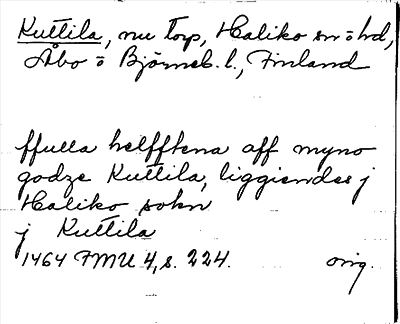 Kuttila, nu torp, Haliko sn o hd,
Åbo o Björneb. l., Finland
ffulla helfftena aff myno
godze Kuttila, liggiendes j
Haliko sokn
j Kuttila
1464 FMU 4, s. 224. orig.